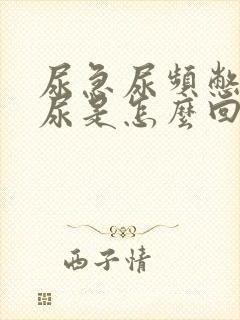 尿急尿頻憋
尿是怎麼回
西子情